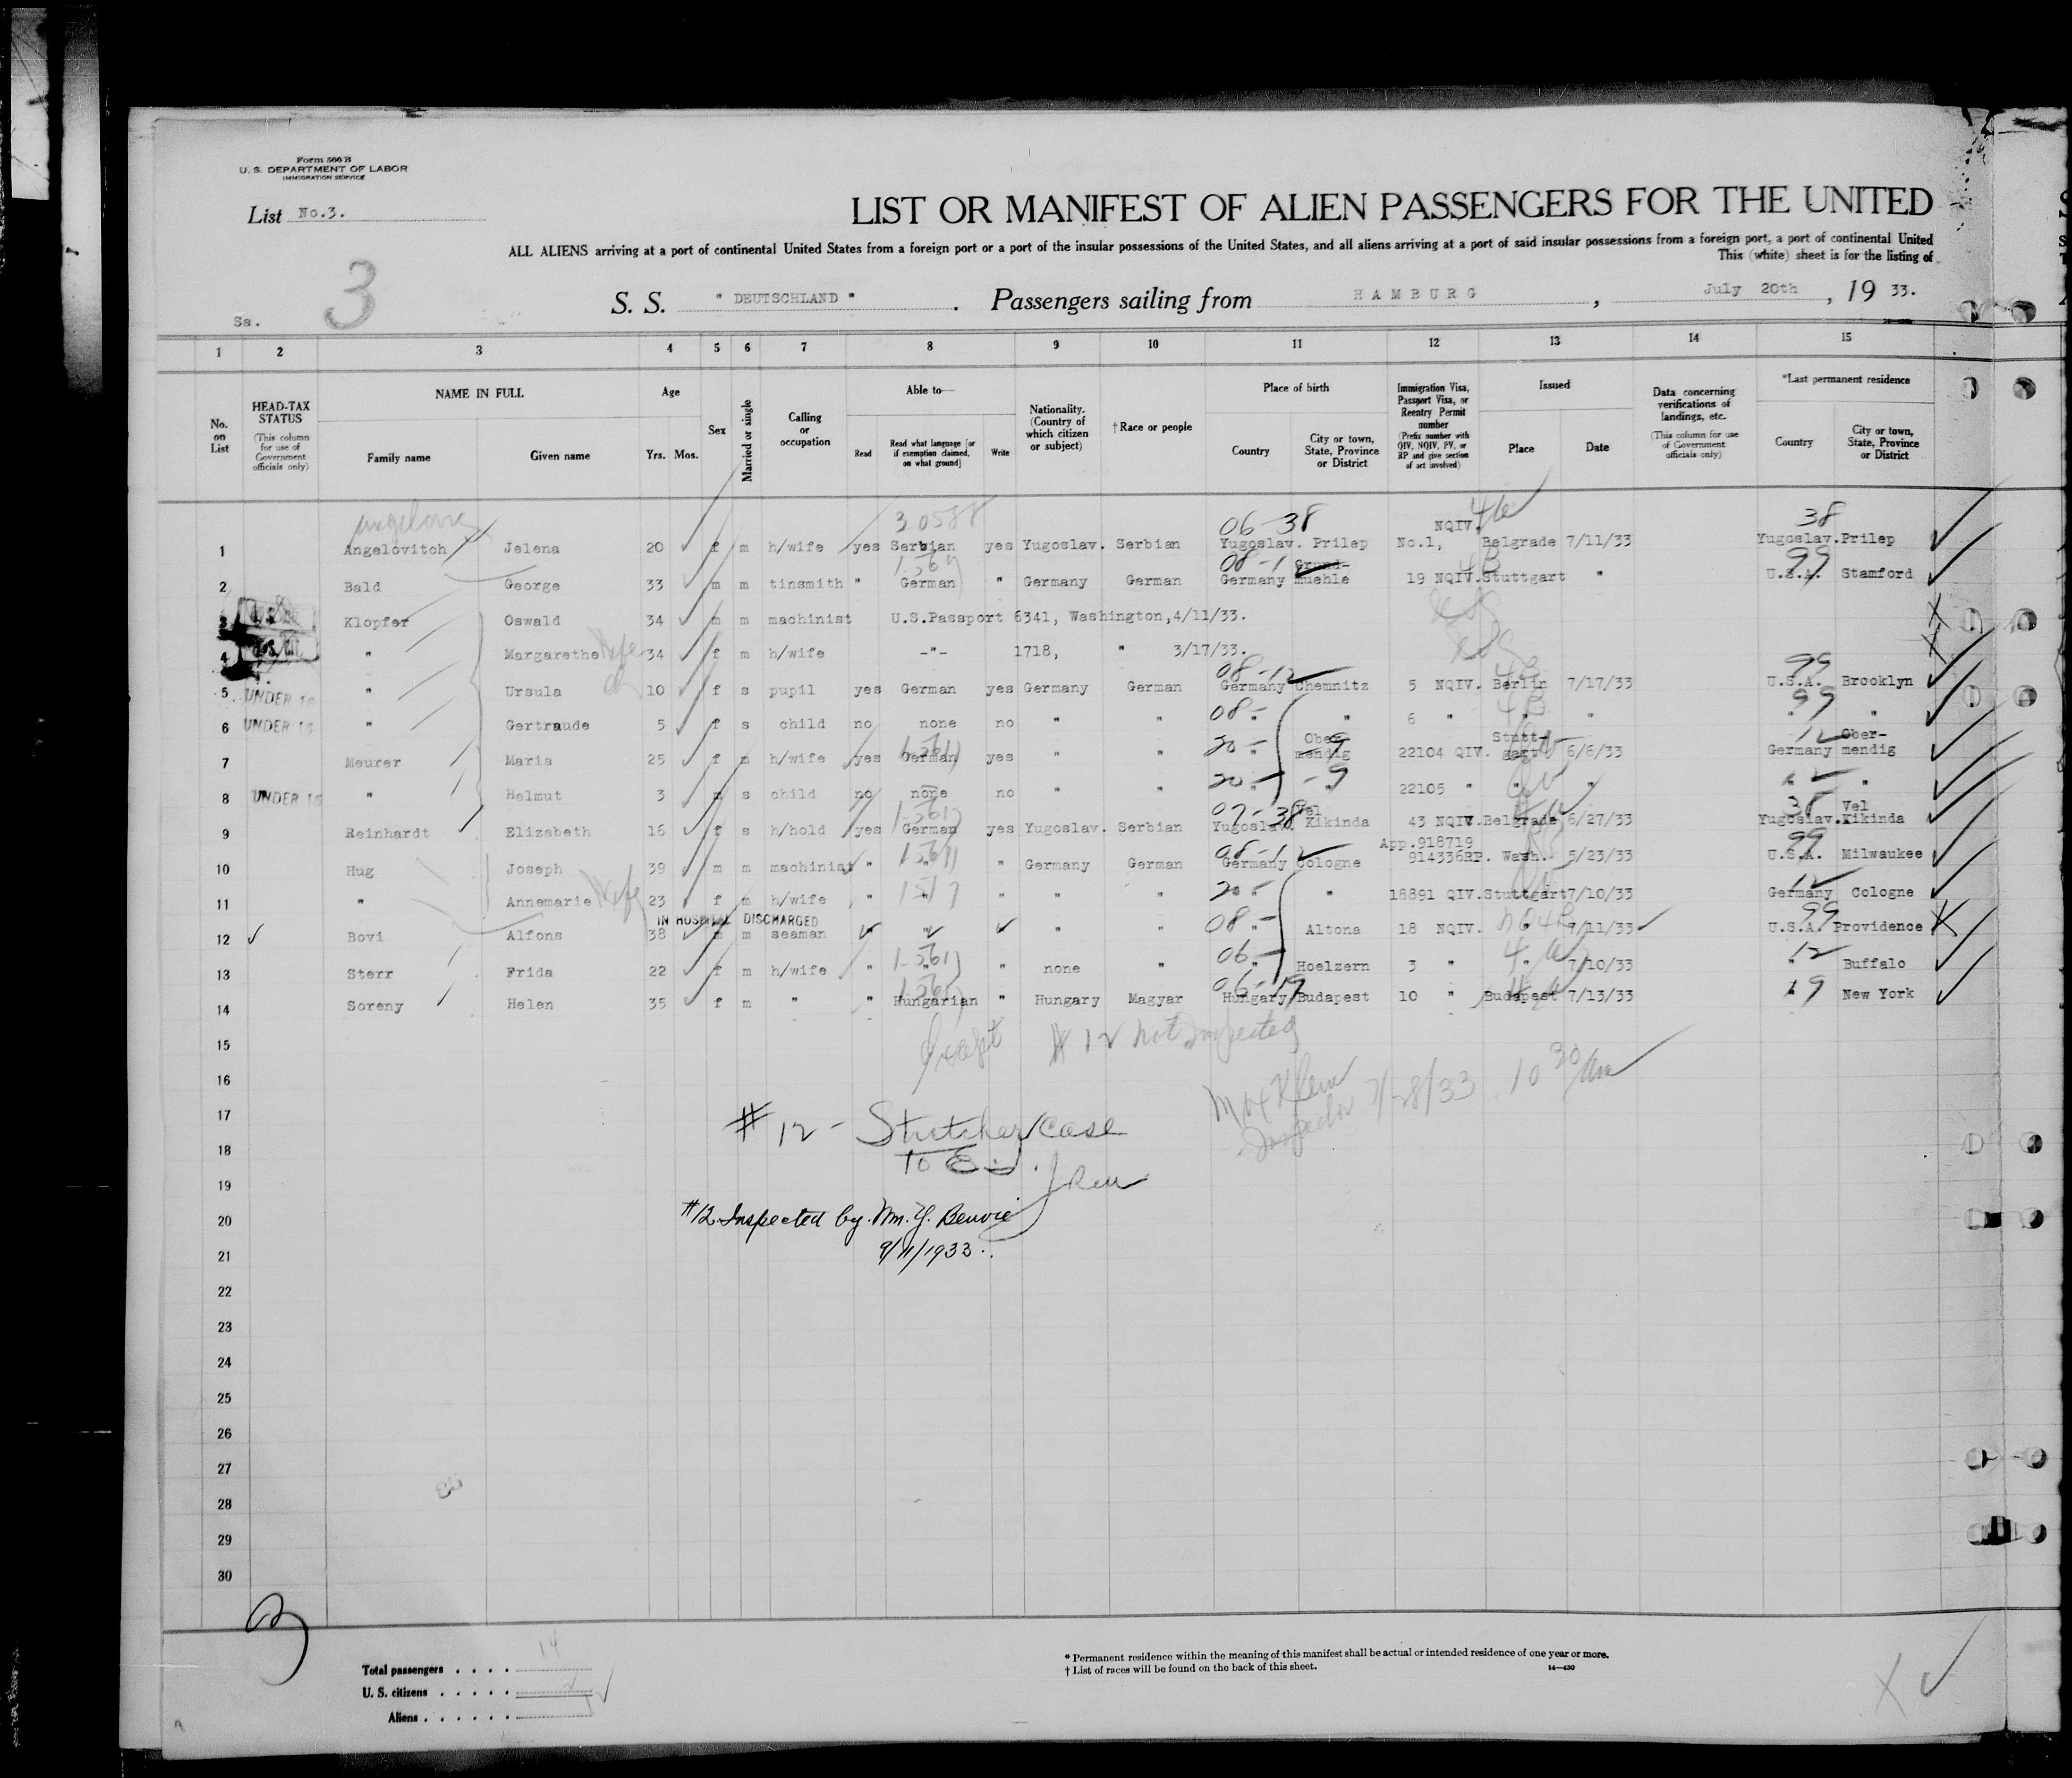 Form 500 B
U. S. DEPARTMENT OF LABOR
IMMIGRATION SERVICE
List No.3.
LIST OR MANIFEST OF ALIEN PASSENGERS FOR THE UNITED
ALL ALIENS arriving at a port of continental United States from a foreign port or a port of the insular possessions of the United States, and all aliens arriving at a port of said insular possessions from a foreign port, a port of continental United
This (white) sheet is for the listing of
3
S. S. " DEUTSCHLAND " . Passengers sailing from HAMBURG , July 20th , 19 33.
Sa.
1 2 3 4 5 6 7 8 9 10 11 12 13 14 15
No. on List
HEAD-TAX STATUS (This column for use of Government officials only)
NAME IN FULL Family name Given name
Age Yrs. Mos.
Sex
Married or single
Calling or occupation
Able to— Read Read what language [or if exemption claimed, on what ground] Write
Nationality. (Country of which citizen or subject)
† Race or people
Place of birth Country City or town, State, Province or District
Immigration Visa, Passport Visa, or Reentry Permit number (Prefix number with QIV, NQIV, PV, or RP and give section of act involved)
Issued Place Date
Data concerning verifications of landings, etc. (This column for use of Government officials only)
*Last permanent residence Country City or town, State, Province or District
30588 06-38 38
1 Angelovitch Jelena 20 f m h/wife yes Serbian yes Yugoslav. Serbian Yugoslav. Prilep NQIV. No.1, Belgrade 7/11/33 Yugoslav. Prilep
08-1 4B 99
2 Bald George 33 m m tinsmith " German " Germany German Germany Grund-muehle 19 NQIV. Stuttgart " U.S.A. Stamford
3 Klopfer Oswald 34 m m machinist U.S.Passport 6341, Washington,4/11/33.
4 " Margarethe Wife 34 f m h/wife -"- 1718, " 3/17/33.
08-12 4B 99
5 UNDER 16 " Ursula ch 10 f s pupil yes German yes Germany German Germany Chemnitz 5 NQIV. Berlin 7/17/33 U.S.A. Brooklyn
08- 4B 99
6 UNDER 16 " Gertraude 5 f s child no none no " " " " 6 " " " " "
20- 9 12
7 Meurer Maria 25 f m h/wife yes German yes " " " Ober-mendig 22104 QIV. Stutt-gart 6/6/33 Germany Ober-mendig
20- -9
8 UNDER 16 " Helmut 3 m s child no none no " " " " 22105 " " " " "
07-38
9 Reinhardt Elizabeth 16 f s h/hold yes German yes Yugoslav. Serbian Yugoslav. Vel Kikinda 43 NQIV. Belgrade 6/27/33 Yugoslav. Vel Kikinda
08-12 99
10 Hug Joseph 39 m m machinist " " " Germany German Germany Cologne App.918719 914336RP. Wash. 5/23/33 U.S.A. Milwaukee
20- 12
11 " Annemarie Wife 23 f m h/wife " " " " " " " 18891 QIV. Stuttgart 7/10/33 Germany Cologne
IN HOSPITAL DISCHARGED
08- 99
12 Bovi Alfons 38 m m seaman " " " " " " Altona 18 NQIV. " 7/11/33 U.S.A. Providence
06- 12
13 Sterr Frida 22 f m h/wife " " " none " " Hoelzern 3 " " 7/10/33 " Buffalo
06-19 19
14 Soreny Helen 35 f m " " Hungarian " Hungary Magyar Hungary Budapest 10 " Budapest 7/13/33 " New York
15
Except # 12 not Inspected
16
Max Klein 7/28/33 10 30 am
Inspector
17
# 12 - Stretcher case
18
To E.I.
19
20
#12 Inspected by Wm. Y.
21
9/11/1933.
22
23
24
25
26
27
28
29
30
Total passengers . . . . 14
U. S. citizens . . . . .
Aliens . . . . . .
* Permanent residence within the meaning of this manifest shall be actual or intended residence of one year or more.
† List of races will be found on the back of this sheet. 14—430